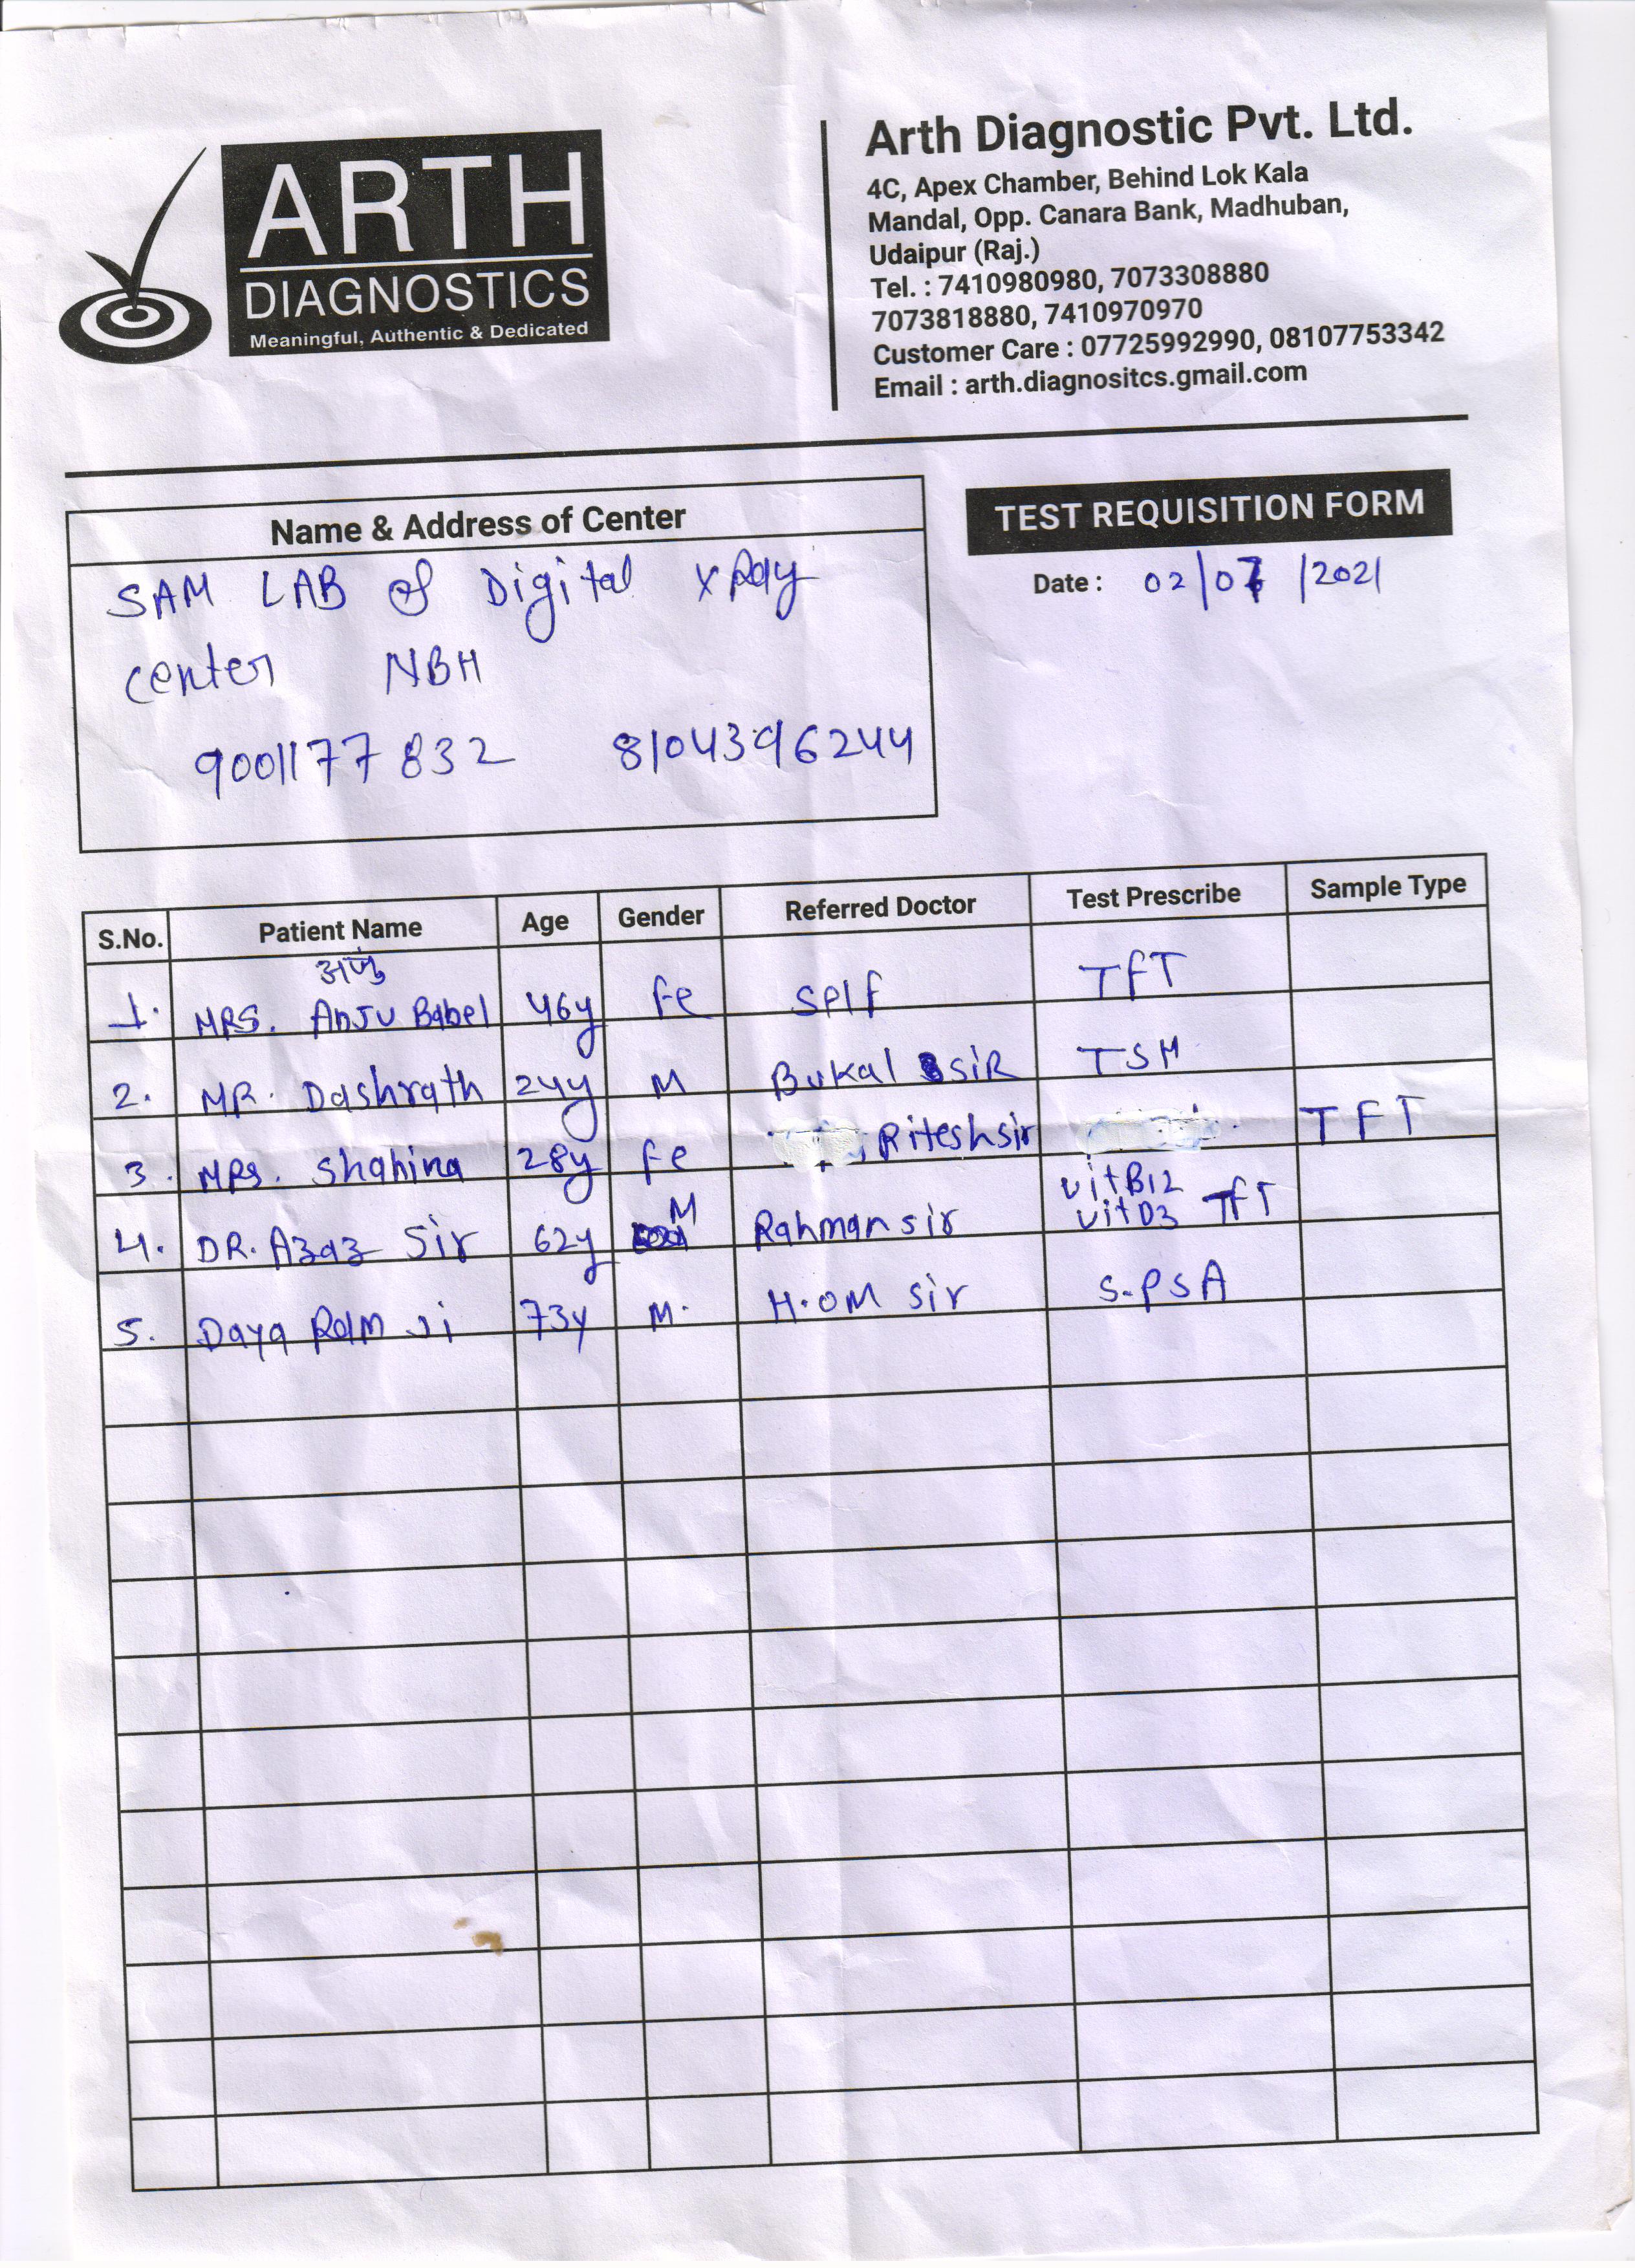 ARTH
DIAGNOSTICS
Meaningful, Authentic & Dedicated
Arth Diagnostic Pvt. Ltd.
4C, Apex Chamber, Behind Lok Kala
Mandal, Opp. Canara Bank, Madhuban,
Udaipur (Raj.)
Tel. : 7410980980, 7073308880
7073818880, 7410970970
Customer Care : 07725992990, 08107753342
Email : arth.diagnositcs.gmail.com
Name & Address of Center
SAM LAB of Digital xRay
center NBH
9001177832 8104396244
TEST REQUISITION FORM
Date : 02/07/2021
S.No. Patient Name Age Gender Referred Doctor Test Prescribe Sample Type
अंजु
1. MRS. Anju Babel 46y Fe Self TFT
2. MR. Dashrath 24y M Bukal sir TSH
3. MRS. Shahina 28y Fe Ritesh sir TFT
4. DR. Azaz Sir 62y M Rahman sir vitB12
vitD3 TFT
5. Daya Ram Ji 73y M. H.OM sir S-PSA